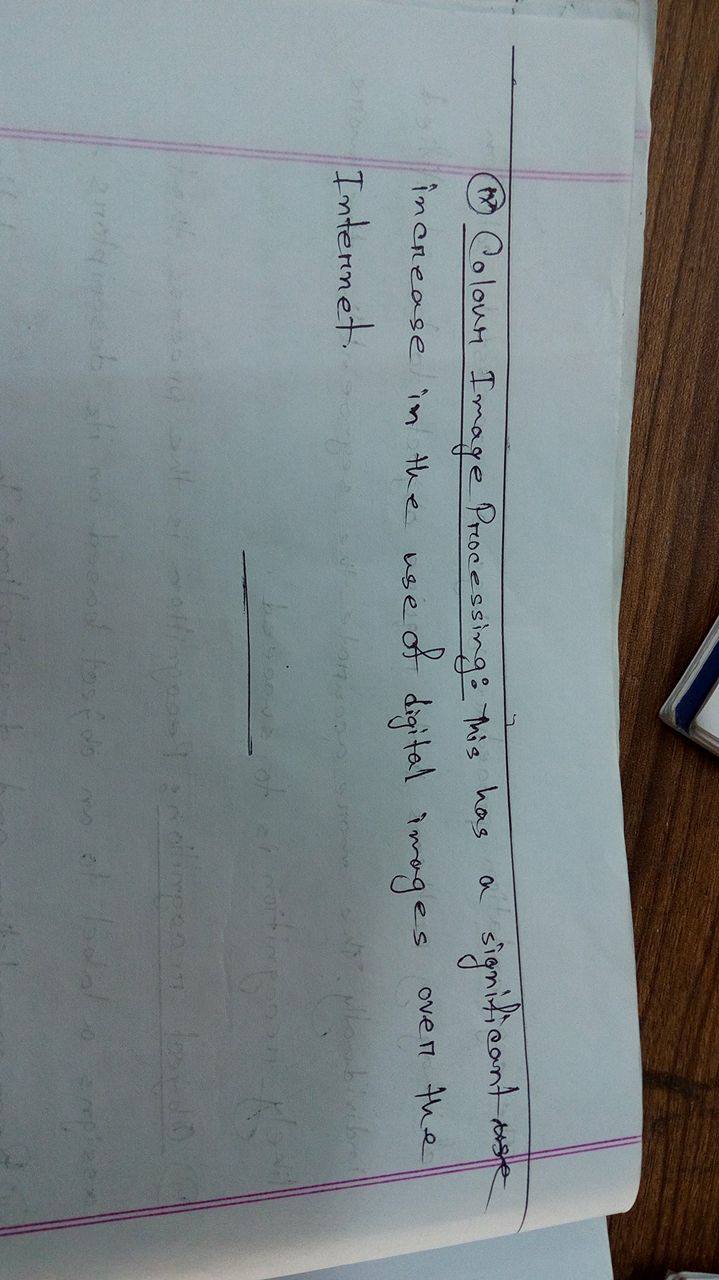 Colour Image Processing: This has a significant use
increase in the use of digital images over the
Internet.